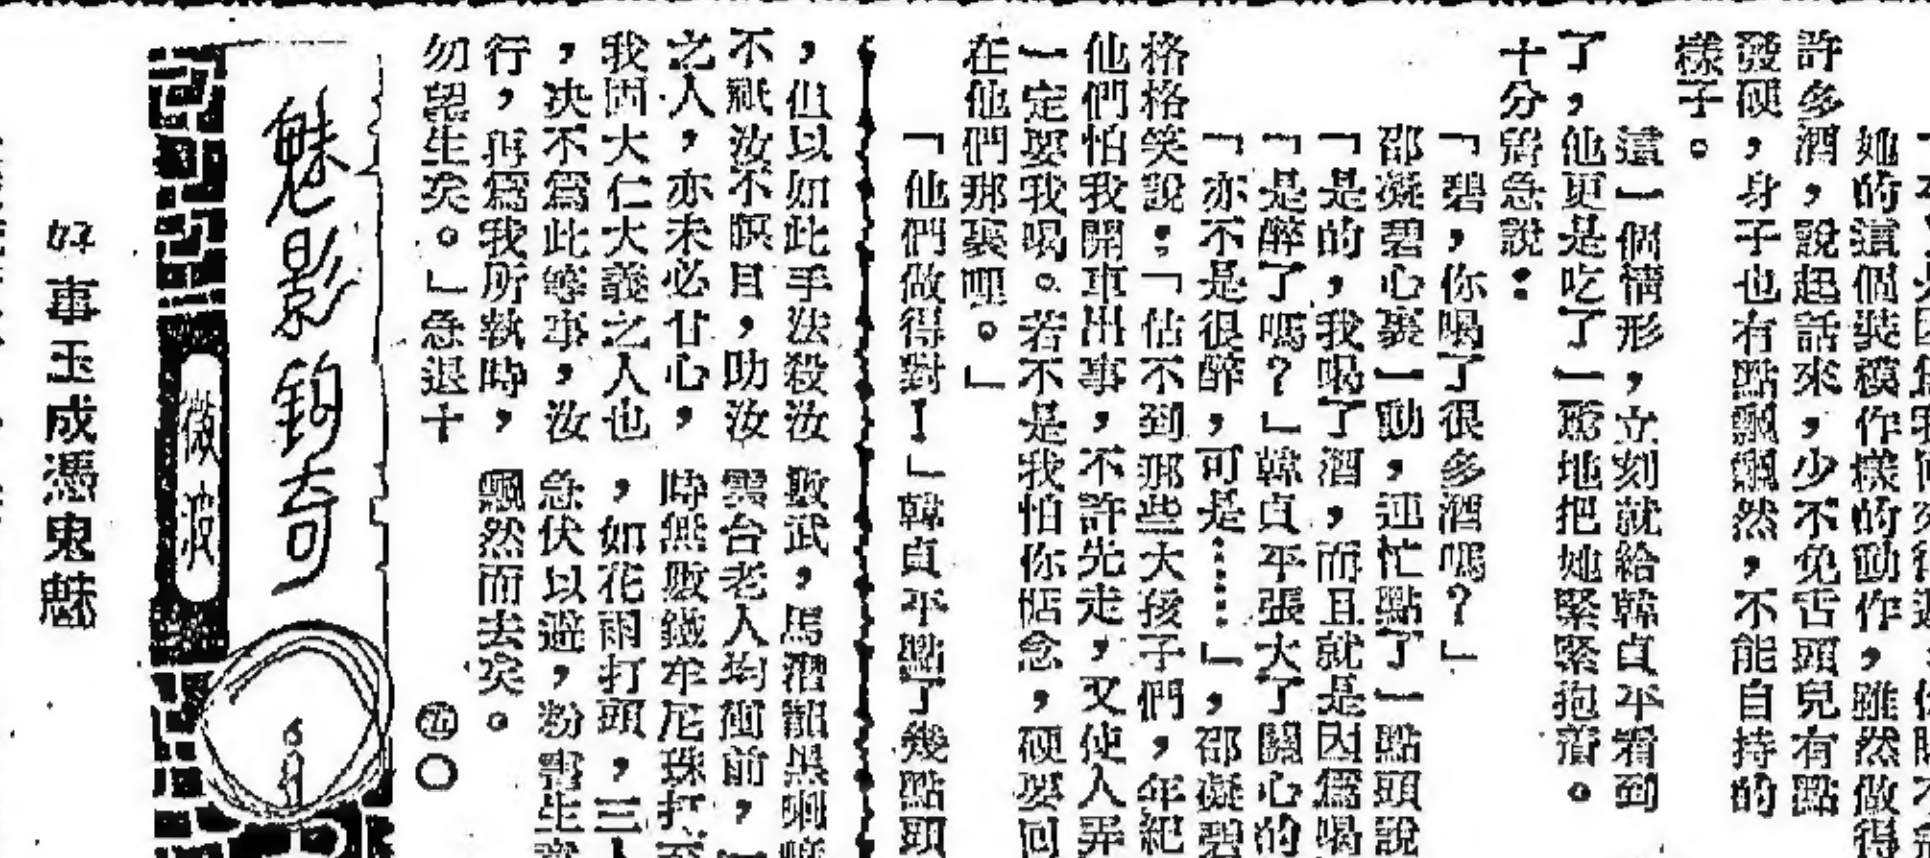 她的這個裝模作樣的動作，雖然做得
許多酒，說起話來，少不免舌頭兒有點
發硬，身子也有點飄飄然，不能自持的
樣子。
這一個情形，立刻就給韓貞平看到
了，他更是吃了一驚地把她緊緊抱着。
十分着急說：
「碧，你喝了很多酒嗎？」
邵凝碧心裏一動，連忙點了一點頭說
「是的，我喝了酒，而且就是因爲喝
「是醉了嗎？」韓貞平張大了關心的
「亦不是很醉，可是……」，邵凝碧
格格笑說：「估不到那些大孩子們，年紀
他們怕我開車出事，不許先走，又使人弄
一定要我喝。若不是我怕你惦念，硬要回
在他們那裏哩。」
「他們做得對！」韓貞平點了幾點頭
，但以如此手法殺汝
不祇汝不瞑目，助汝
之人，亦未必甘心，
我固大仁大義之人也
，决不爲此等事，汝
行，再爲我所執時，
勿望生矣。」急退十
數武，馬潛韶黑喇嘛
雲台老人均衝前，
時無數鐵牟尼珠打至
，如花雨打頭，三人
急伏以避，粉
飄然而去矣。
㊄〇
魅影鈎奇
微波
好事玉成憑鬼魅